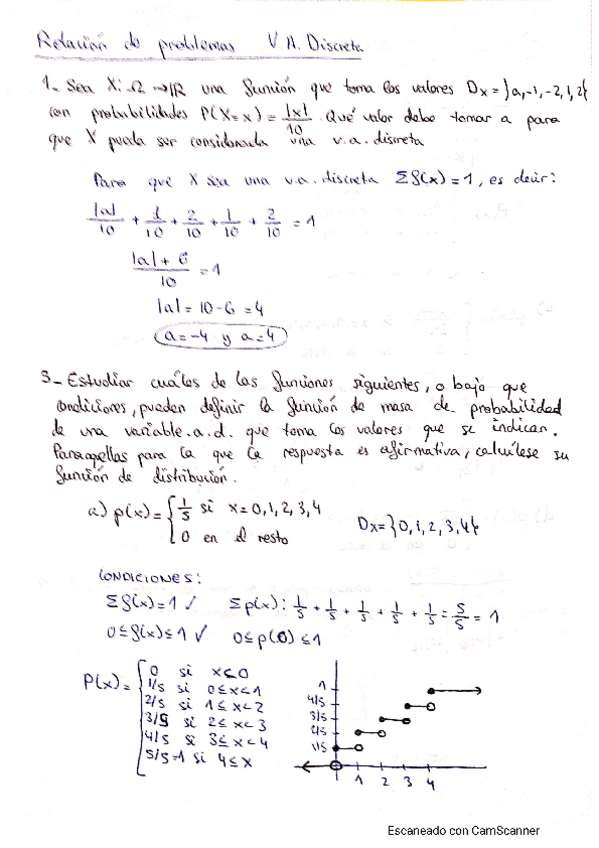 Relación de problemas V.A. Discreta
1- Sea X: Ω → IR una función que toma los valores Dx = }a,-1,-2,1,2{
con probabilidades P(X=x) = |x|/10. Qué valor debe tomar a para
que X pueda ser considerada una v.a. discreta
Para que X sea una v.a. discreta Σf(x)=1, es decir:
|a|/10 + 1/10 + 2/10 + 1/10 + 2/10 = 1
|a| + 6 / 10 = 1
|a| = 10-6 = 4
a=-4 y a=4
3- Estudiar cuáles de las funciones siguientes, o bajo que
condiciones, pueden definir la función de masa de probabilidad
de una variable.a.d. que toma los valores que se indican.
Para aquellas para la que la respuesta es afirmativa, calcúlese su
función de distribución.
a) p(x) = { 1/5 si x=0,1,2,3,4
0 en el resto
Dx= }0,1,2,3,4{
CONDICIONES:
Σf(x)=1 ✓ Σp(x): 1/5 + 1/5 + 1/5 + 1/5 + 1/5 = 5/5 = 1
0≤f(x)≤1 ✓ 0≤p(0)≤1
P(x)= { 0 si x<0
1/5 si 0≤x<1
2/5 si 1≤x<2
3/5 si 2≤x<3
4/5 si 3≤x<4
5/5=1 si 4≤x
1
4/5
3/5
2/5
1/5
1 2 3 4
Escaneado con CamScanner